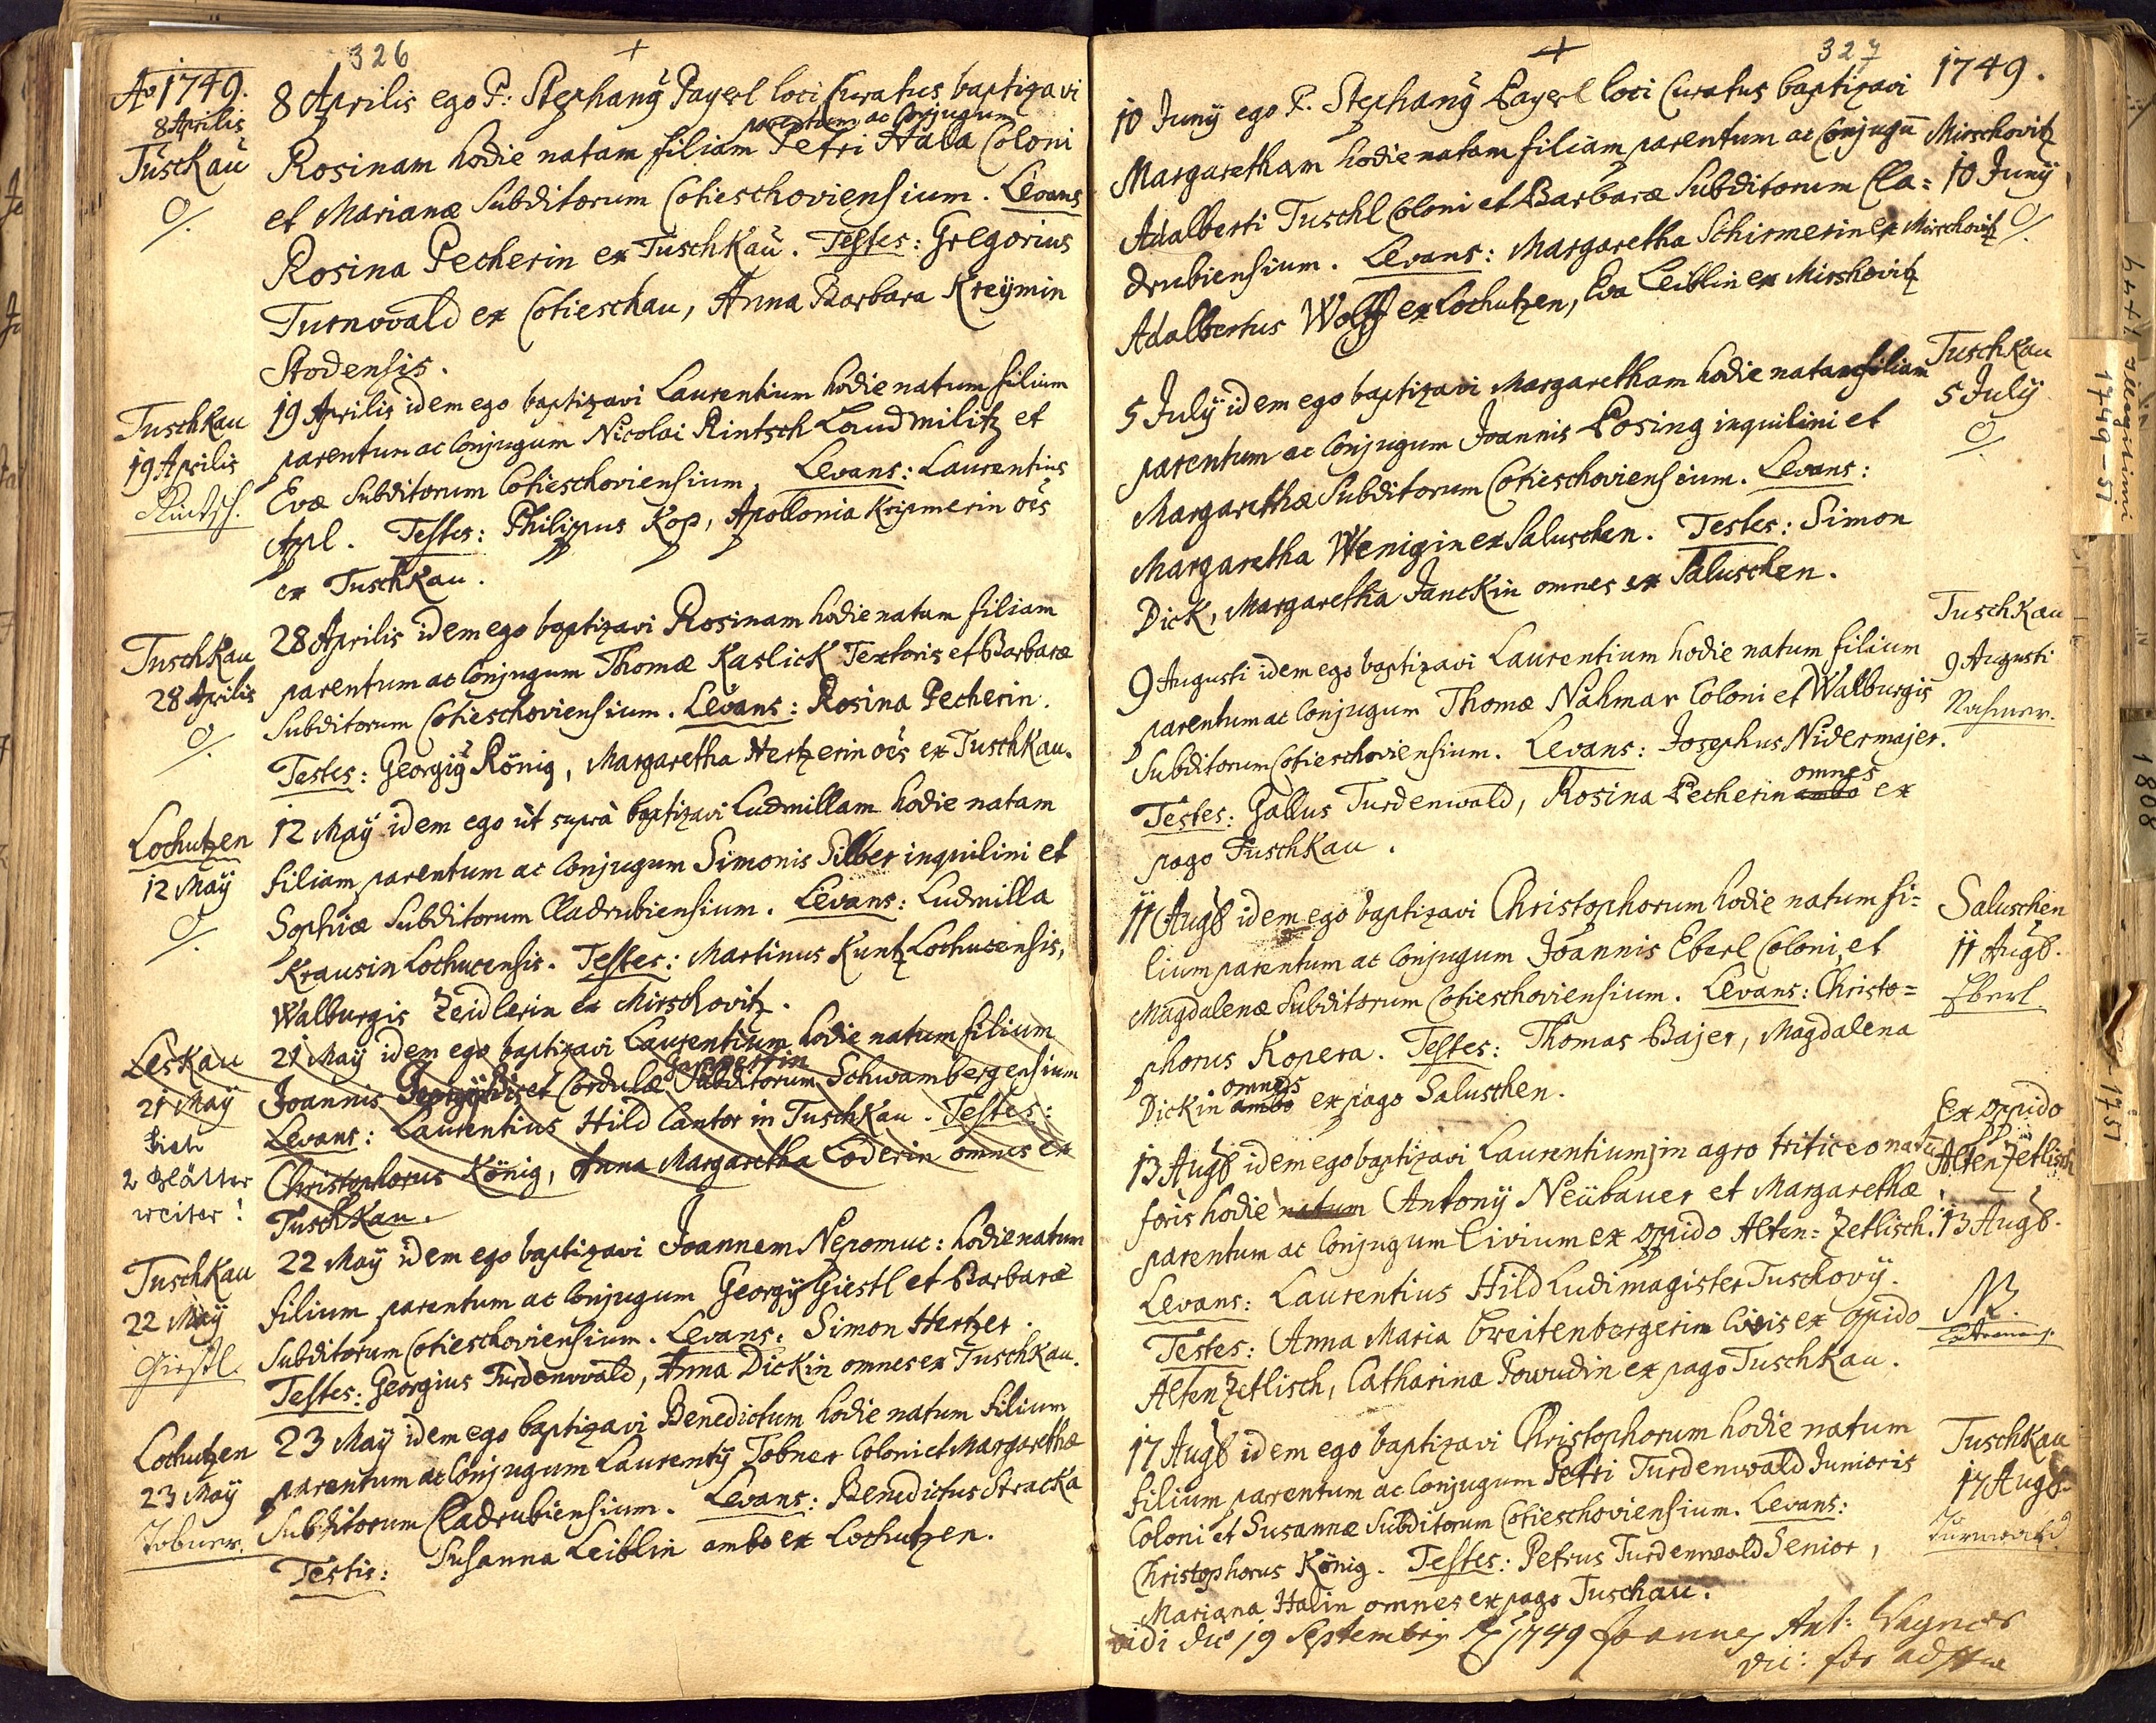 326
Ao 1749.
8 Aprilis
Tuschkau
8 Aprilis ego P: Stephanÿ Payerl loci Curatus baptizavi
parentum ac Conjugum
Rosinam hodie natam filiam Petri Hala Coloni
et Marianæ Subditorum Cotieschoviensium. Levans
Rosina Pecherin ex Tuschkau. Testes: Gregorius
Turnwald ex Cotieschau, Anna Barbara Kreÿmin
Stodensis.
Tuschkau
19 Aprilis
Rintsch.
19 Aprilis idem ego baptizavi Laurentium hodie natum filium
parentum ac Conjugum Nicolai Rintsch Landmilitz et
Evæ Subditorum Cotieschoviensium. Levans: Laurentius
Apl. Testes: Philippus Kop, Apollonia oēs
ex Tuschkau.
Tuschkau
28 Aprilis
28 Aprilis idem ego baptizavi Rosinam hodie natam filiam
parentum ac Conjugum Thomæ Kaslick Textoris et Barbaræ
Subditorum Cotieschoviensium. Levans: Rosina Pecherin.
Testes: Georgiÿ König, Margaretha Hertzerin oēs ex Tuschkau.
Lochutzen
12 Maÿ
12 Maÿ idem ego ùt suprà baptizavi Ludmillam hodie natam
filiam parentum ac Conjugum Simonis Silber inquilini et
Sophiæ Subditorum Cladrubiensium. Levans: Ludmilla
Krausin Lochucensis. Testes: Martinus Kuntz Lochucensis,
Walburgis Zeidlerin ex Mirschovitz.
Leskau
21 Maÿ
Sieh
2 Blätter
weiter!
21 Maÿ idem ego baptizavi Laurentium hodie natum filium
Joannis et Cordulæ Subditorum Schwambergensium
Levans: Laurentius Hild Cantor in Tuschkau. Testes:
Christophorus König, Anna Margaretha Loderin omnes ex
Tuschkau.
Tuschkau
22 Maÿ
Giestl.
22 Maÿ idem ego baptizavi Joannem Nepomuc: hodie natum
filium parentum ac Conjugum Georgÿ Giestl et Barbaræ
Subditorum Cotieschoviensium. Levans: Simon Hertzer.
Testes: Georgius Turdenwald, Anna Dickin omnes ex Tuschkau.
Lochutzen
23 Maÿ
Tobner.
23 Maÿ idem ego baptizavi Benedictum hodie natum filium
parentum ac Conjugum Laurentÿ Tobner Coloni et Margarethæ
Subditorum Cladrubiensium. Levans: Benedictus Stracka
Testis: Susanna Leiblin ambo ex Lochutzen.
327
1749.
Mirschovitz
10 Junÿ
10 Junÿ ego P. Stephanÿ Payerl loci Curatus baptizavi
Margaretham hodie natam filiam parentum ac Conjugū
Adalberti Tuschl Coloni et Barbaræ Subditorum Cla=
drubiensium. Levans: Margaretha Schirmerin ex Mirschovitz
Adalbertus Wolff ex Lochutzen, Eva Leiblin ex Mirshovitz
Tuschkau
5 Julÿ
5 Julÿ idem ego baptizavi Margaretham hodie natam filiam
parentum ac Conjugum Joannis Posing inquilini et
Margarethæ Subditorum Cotieschoviensium. Levans:
Margaretha Wenigin ex Saluschen. Testes: Simon
Dick, Margaretha Janckin omnes ex Saluschen.
Tuschkau
9 Augusti
Nahmer.
9 Augusti idem ego baptizavi Laurentium hodie natum filium
parentum ac Conjugum Thomæ Nahmar Coloni et Walburgis
Subditorum Cotieschoviensium. Levans: Josephus Nidermajer.
omnes
Testes: Gallus Turdenwald, Rosina Pecherin ambo ex
pago Tuschkau.
Saluschen
11 Aug8.
Eberl.
11 Aug8 idem ego baptizavi Christophorum hodie natum fi=
lium parentum ac Conjugum Joannis Eberl Coloni, et
Magdalenæ Subditorum Cotieschoviensium. Levans: Christo=
phorus Kopera. Testes: Thomas Bajer, Magdalena
omnes
Dickin ambo ex pago Saluschen.
Ex oppido
Alten Zetlisch
13 Aug8.
NB.
13 Aug8 idem ego baptizavi Laurentium, in agro triticeo natū
foris hodie natum Antonÿ Neübauer et Margarethæ
parentum ac Conjugum Civium ex oppido Alten=Zetlisch.
Levans: Laurentius Hild Ludimagister Tuschovÿ.
Testes: Anna Maria Breitenbergerin Civis ex oppido
Alten Zetlisch, Catharina Powudin ex pago Tuschkau.
Tuschkau
17 Aug8.
Turnwald.
17 Aug8 idem ego baptizavi Christophorum hodie natum
filium parentum ac Conjugum Petri Turdenwald Junioris
Coloni et Susannæ Subditorum Cotieschoviensium. Levans:
Christophorus König. Testes: Petrus Turdenwald Senior,
Mariana Halin omnes ex pago Tuschau.
vidi die 19 Septembris 1749 Joannes Ant: Wagner
1749-51
1808
1751